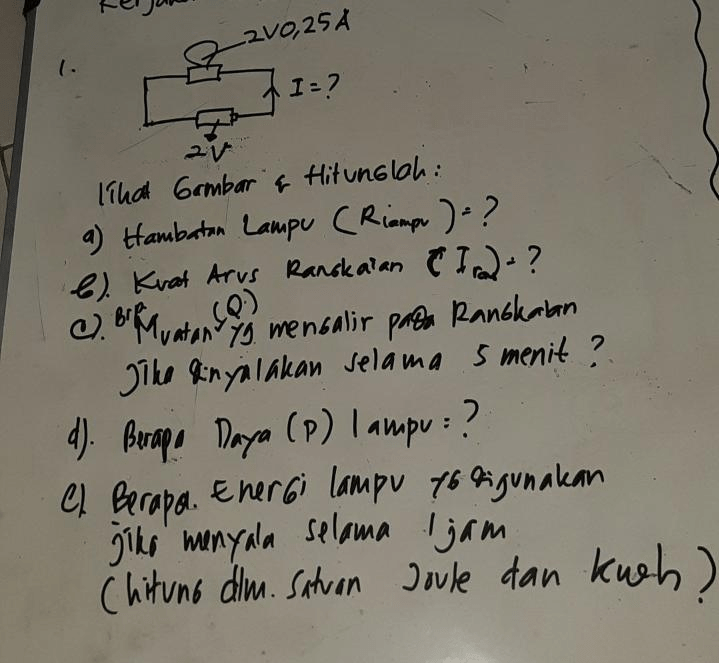 2V 0,25 A
1.
I = ?
2V
lihat Gambar & Hitunglah :
a) Hambatan Lampu (R lampu) = ?
b). Kuat Arus Rangkaian (I ) = ?
c). Brp Muatan (Q) yg mengalir pada Rangkaian
Jika dinyalakan selama 5 menit ?
d). Berapa Daya (P) lampu = ?
e) Berapa. Energi lampu yg digunakan
jika menyala selama 1 jam
(hitung dlm. Satuan Joule dan kwh)